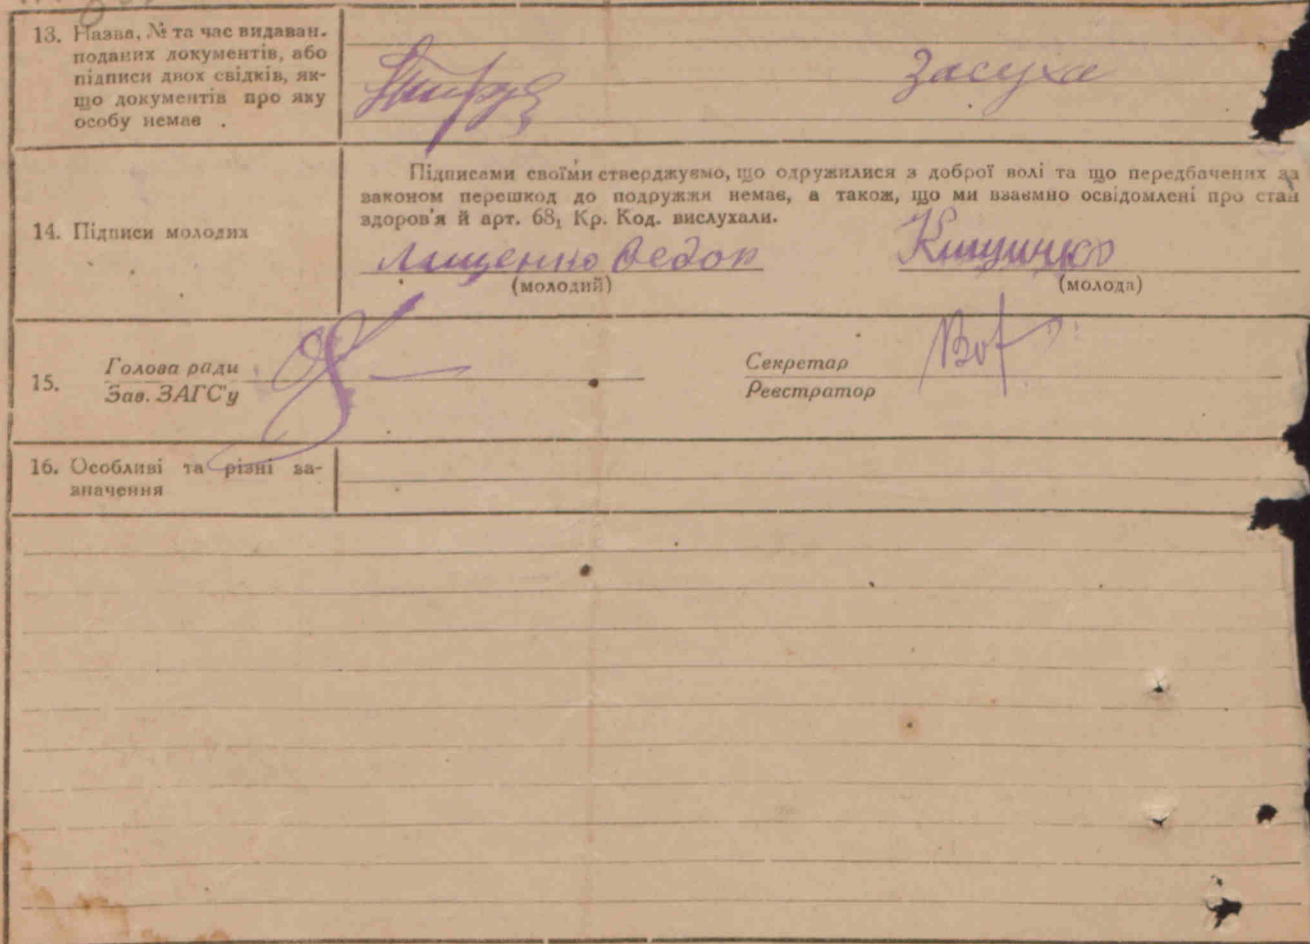 13. Назва, № та час видаван.
поданих документів, або
підписи двох свідків, як-
що документів про яку
особу немає .
Засуха
Підписами своїми стверджуємо, що одружилися з доброї волі та що передбачених за
законом перешкод до подружжя немає, а також, що ми взаємно освідомлені про стан
здоров'я й арт. 68₁ Кр. Код. вислухали.
14. Підписи молодих
Лищенко Федор
(молодий) (молода)
15. Голова ради Секретар
Зав. ЗАГС'у Реєстратор
16. Особливі та різні за-
значення